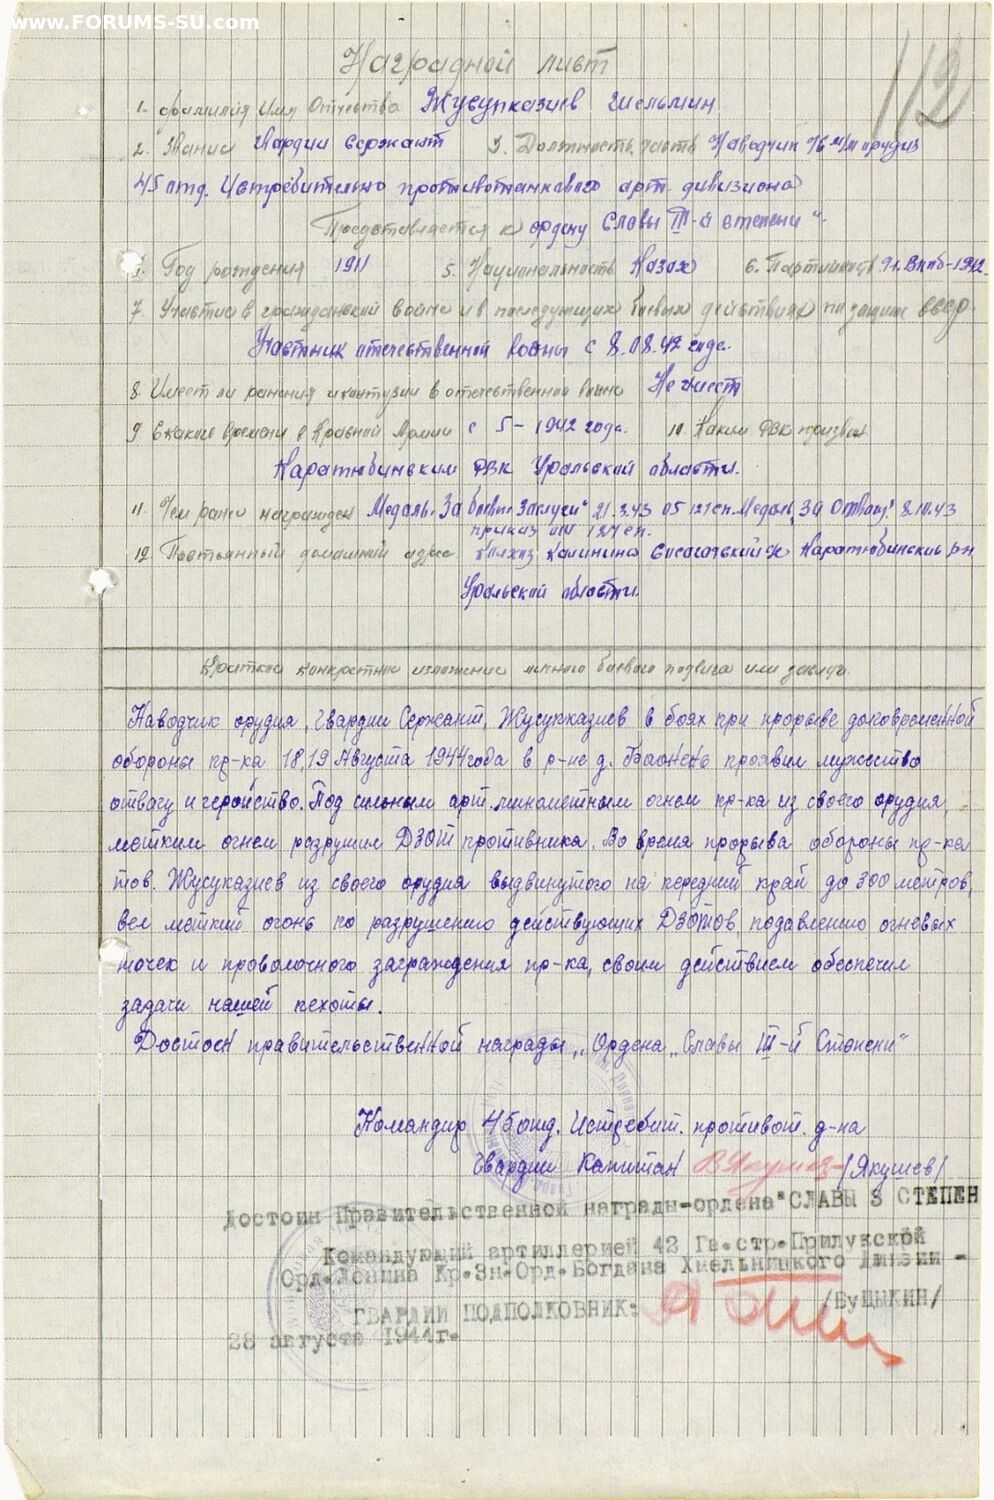 www.FORUMS-SU.com
112
Наградной лист
1. Фамилия Имя Отчество Жусупказиев Шельмин
2. Звание Гвардии сержант 3. Должность, часть Наводчик 76 м/м орудия
45 отд. Истребительно противотанкового арт. дивизиона
Представляется к ордену Славы III-й степени".
Год рождения 1911 5. Национальность Казах 6. Партийность Чл. ВКПб-1942
7. Участие в гражданской войне и в последующих боевых действиях по защите СССР.
Участник отечественной войны с 8.08.42 года.
8. Имеет ли ранения и контузии в отечественной войне Не имеет
9 С какого времени в Красной Армии с 5-1942 года. 10. Каким РВК призван
Каратюбинским РВК Уральской области.
11. Чем ранее награжден Медаль „За боевые заслуги" 21.3.43 05 127 сп. Медаль „За Отвагу" 8.10.43
приказ 127 сп.
12 Постоянный домашний адрес Колхоз Калинина Каратюбинский р-н
Уральской области.
Краткое конкретное изложение личного боевого подвига или заслуг
Наводчик орудия, Гвардии Сержант, Жусупказиев в боях при прорыве долговременной
обороны пр-ка 18,19 Августа 1944 года в р-не д. проявил мужество
отвагу и геройство. Под сильным арт. минометным огнем пр-ка из своего орудия,
метким огнем разрушил ДЗОТ противника. Во время прорыва обороны пр-ка
тов. Жусуказиев из своего орудия выдвинутого на передний край до 300 метров,
вел меткий огонь по разрушению действующих ДЗОТов, подавлению огневых
точек и проволочного заграждения пр-ка, своим действием обеспечил
задачи нашей пехоты.
Достоен правительственной награды „Ордена „Славы III-й Степени"
Командир 45 отд. Истребит. противот. д-на
Гвардии Капитан /Якушев/
Достоин Правительственной награды-ордена "СЛАВЫ 3 СТЕПЕН
Командующий артиллерией 42 Гв.стр.Прилукской
Орд.Ленина Кр.Зн.Орд.Богдана Хмельницкого Дивзии -
ГВАРДИИ ПОДПОЛКОВНИК: /БУЦЫКИН/
28 августа 1944г.